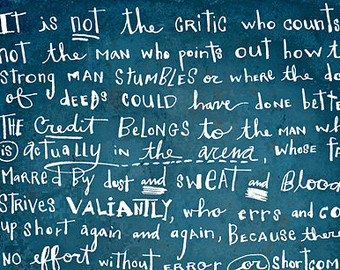 It is not the CRITIC who counts
not the man who points out how t
strong MAN STUMBLES or where the do
of DEEDS COULD have done bette
THE Credit BELONGS to the man wh
is actually in the arena, whose fa
Marred By dust and SWEAT and Blood
STRIVES VALIANTLY, who errs and co
up short again and again, Because there
no effort without error or shortcom